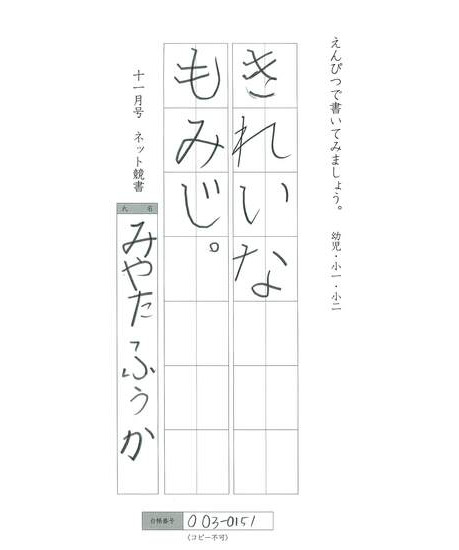 えんぴつで書いてみましょう。　幼児・小一・小二
きれいな
もみじ。
十一月号　ネット競書
氏名
みやた　ふうか
会員番号
003-0151
(コピー不可)